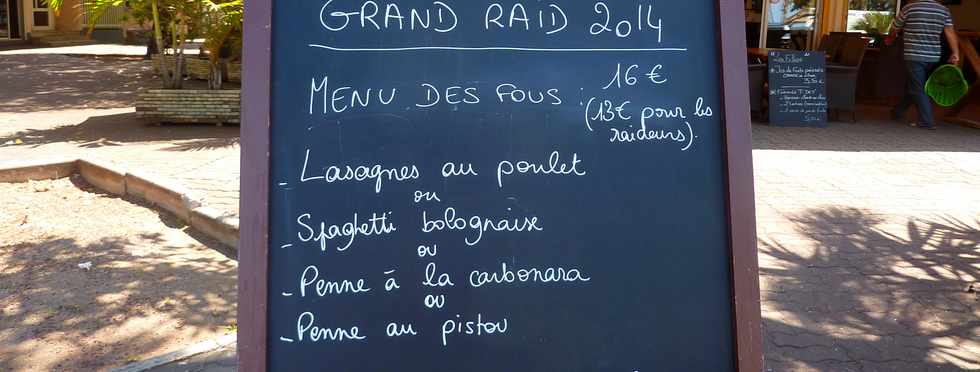 GRAND RAID 2014
MENU DES FOUS : 16 €
(13€ pour les
raideurs).
- Lasagnes au poulet
ou
- Spaghetti bolognaise
ou
- Penne à la carbonara
ou
- Penne au pistou